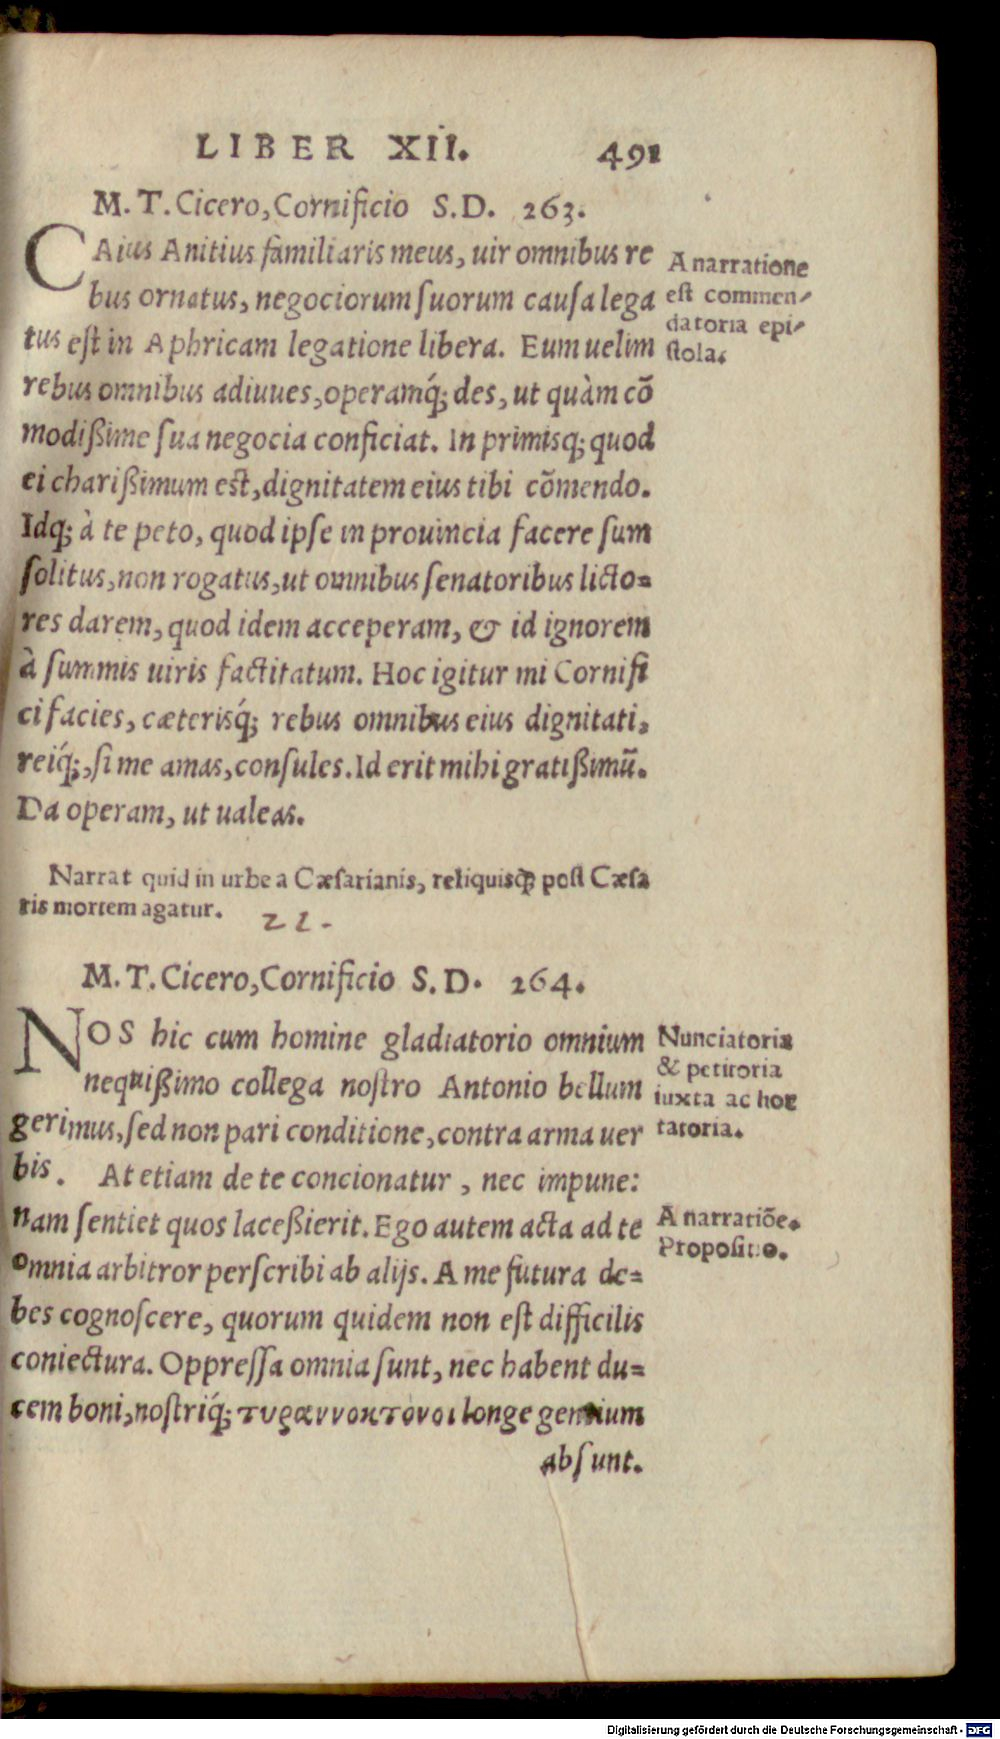 LIBER XII. 491
M. T. Cicero, Cornificio S.D. 263.
CAius Anitius familiaris meus, uir omnibus re
bus ornatus, negociorum suorum causa lega
tus est in Aphricam legatione libera. Eum uelim
rebus omnibus adiuues, operamq́; des, ut quàm cō
modißime sua negocia conficiat. In primisq; quod
ei charißimum est, dignitatem eius tibi cōmendo.
Idq; à te peto, quod ipse in prouincia facere sum
solitus, non rogatus, ut omnibus senatoribus licto=
res darem, quod idem acceperam, & id ignorem
à summis uiris factitatum. Hoc igitur mi Cornifi
ci facies, cæterisq́; rebus omnibus eius dignitati,
reiq́;, si me amas, consules. Id erit mihi gratißimū.
Da operam, ut ualeas.
A narratione
est commen-
datoria epi-
stola.
Narrat quid in urbe a Cæsarianis, reliquisq; post Cæsa
ris mortem agatur.
22.
M. T. Cicero, Cornificio S. D. 264.
NOS hic cum homine gladiatorio omnium
nequißimo collega nostro Antonio bellum
gerimus, sed non pari conditione, contra arma uer
bis. At etiam de te concionatur, nec impune:
nam sentiet quos laceßierit. Ego autem acta ad te
omnia arbitror perscribi ab alijs. A me futura de=
bes cognoscere, quorum quidem non est difficilis
coniectura. Oppressa omnia sunt, nec habent du=
cem boni, nostriq́; τυραννοκτονοι longe gentium
absunt.
Nunciatoria
& petitoria
iuxta ac hor
tatoria.
A narratiōe.
Propositio.
Digitalisierung gefördert durch die Deutsche Forschungsgemeinschaft - DFG